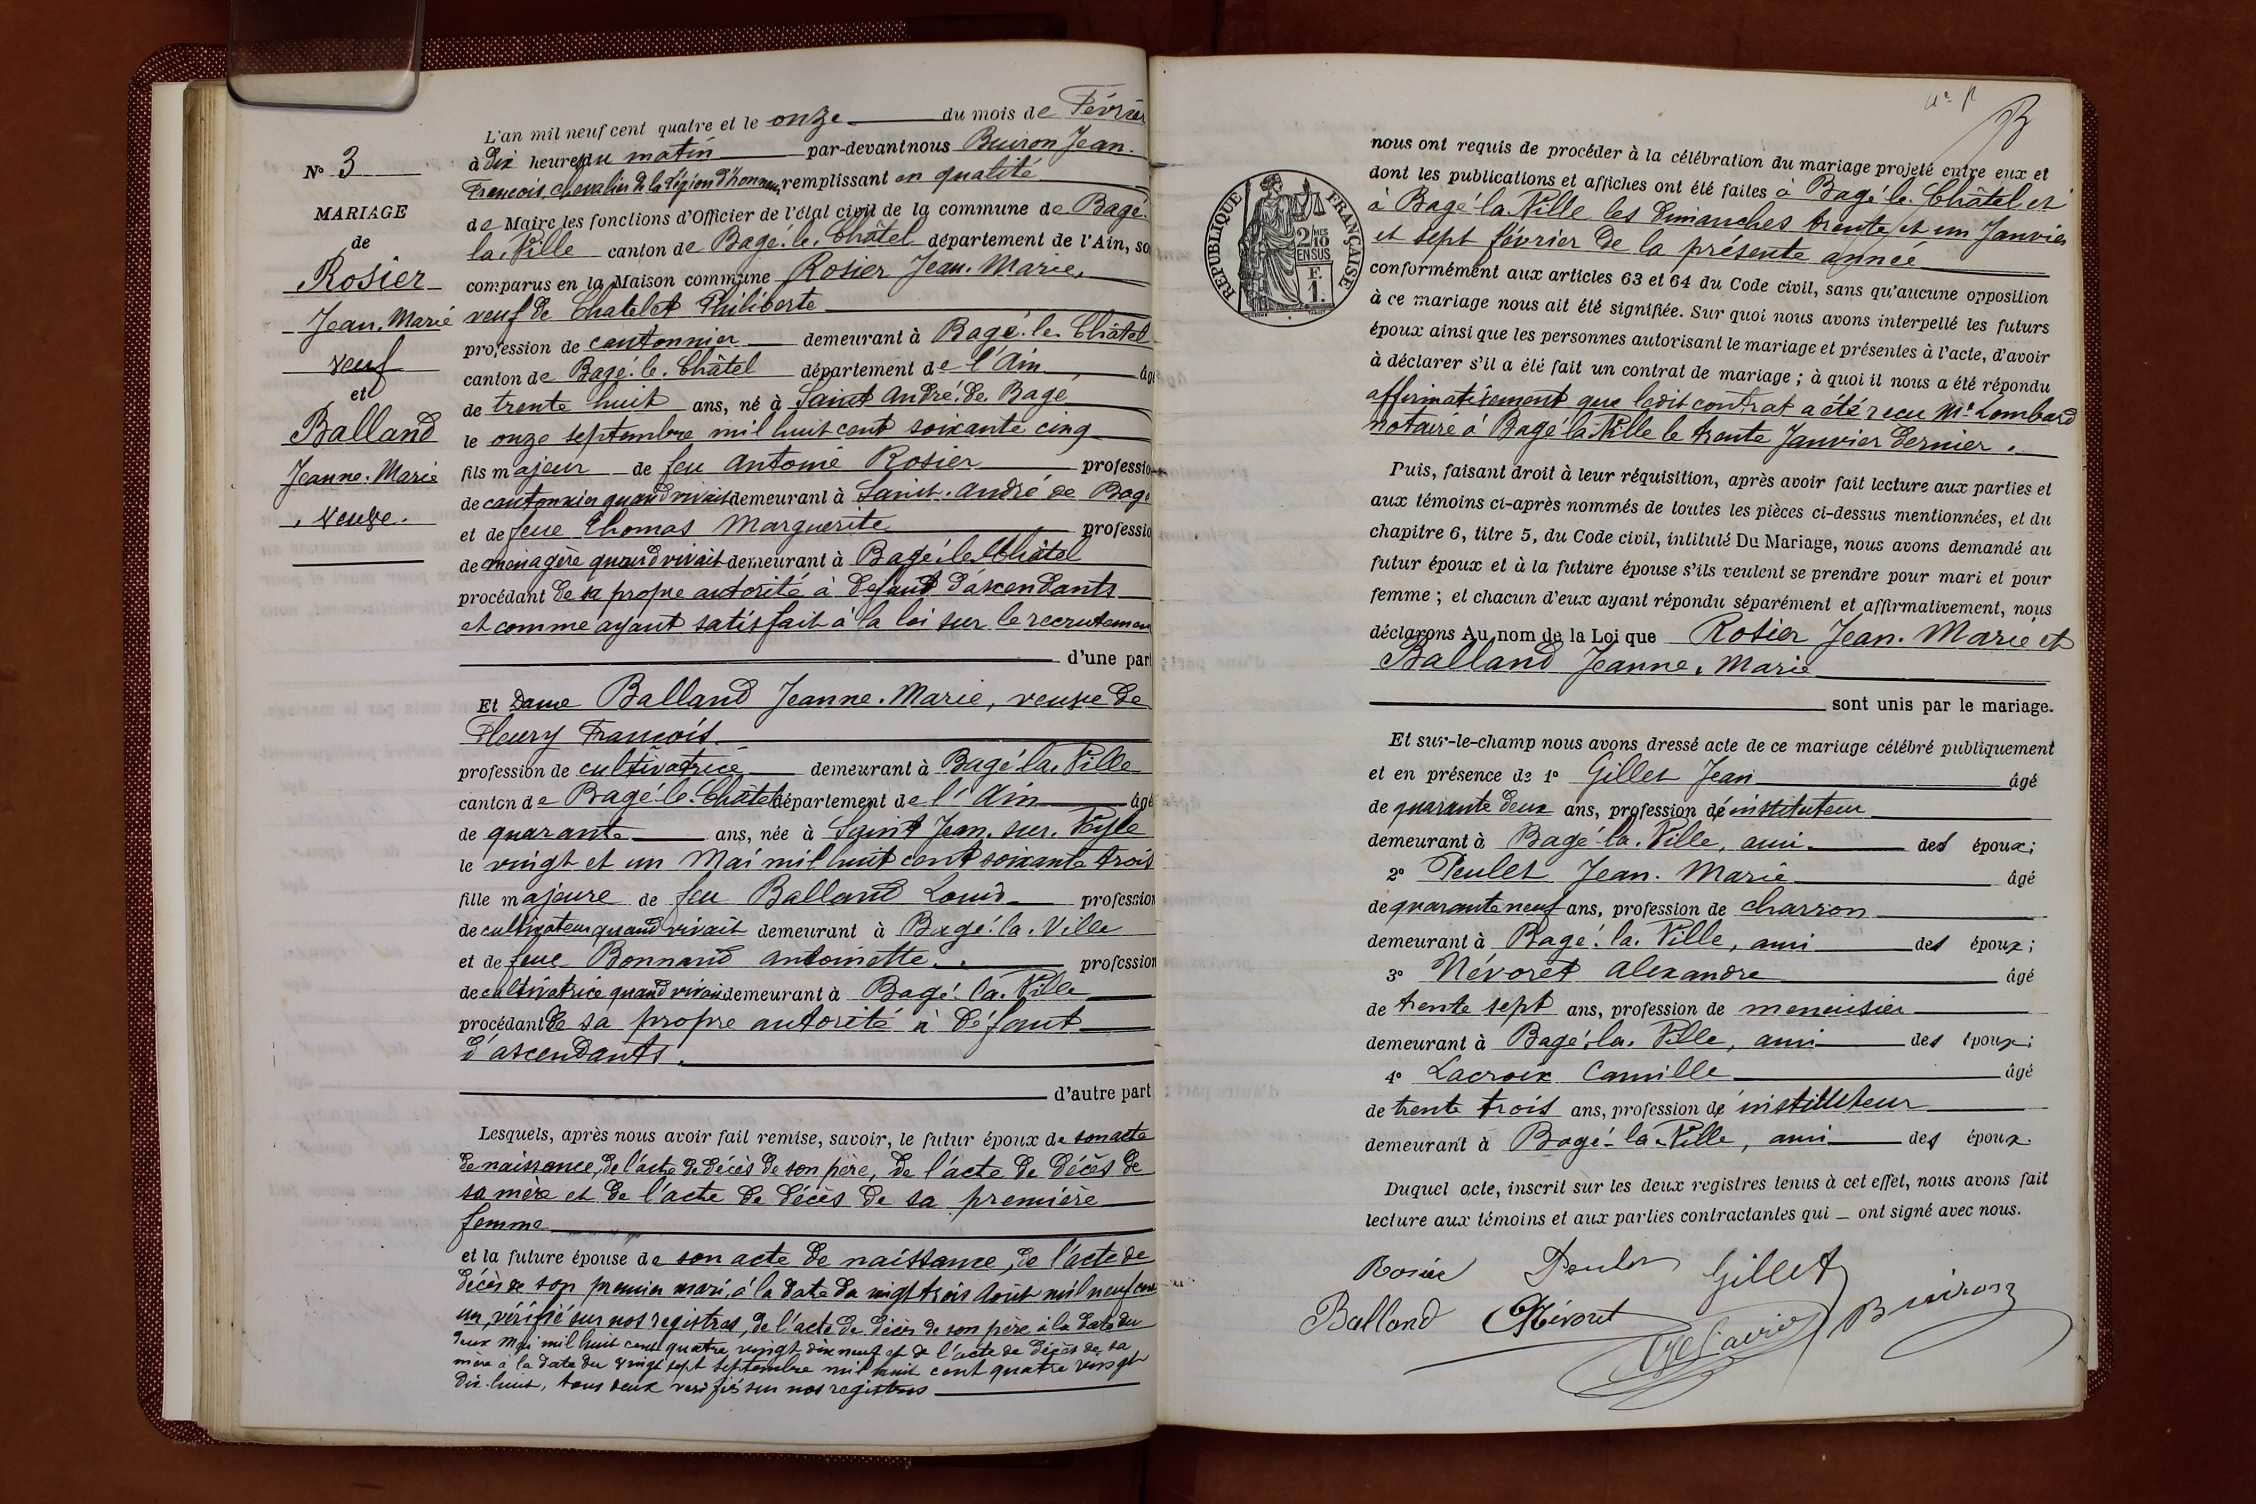 N° 3
MARIAGE
de
Rosier
Jean. Marie
veuf
et
Balland
Jeanne. Marie
veuve.
L'an mil neuf cent quatre et le onze du mois de Février
à Dix heures du matin par-devant nous Buiron Jean.
François, chevalier de la Légion d'honneur, remplissant en qualité
de Maire les fonctions d'Officier de l'état civil de la commune de Bagé.
la. Ville canton de Bagé. le. Châtel département de l'Ain, so
comparus en la Maison commune Rosier Jean. Marie,
veuf de Chatelet Philiberte
profession de cantonnier demeurant à Bagé. le. Châtel
canton de Bagé. le. Châtel département de l'Ain, âgé
de trente huit ans, né à Saint André. de. Bagé
le onze septembre mil huit cent soixante cinq
fils majeur de feu Antoine Rosier professio
de cantonnier quand vivait demeurant à Saint. André de Bagé
et de feue Thomas Marguerite professio
de ménagère quand vivait demeurant à Bagé. le. Châtel
procédant de sa propre autorité à défaut d'ascendants
et comme ayant satisfait à la loi sur le recrutement
d'une part
Et Dame Balland Jeanne. Marie, veuve de
Fleury François.
profession de cultivatrice demeurant à Bagé. la. Ville
canton de Bagé. le. Châtel département de l'Ain âgé
de quarante ans, née à Saint Jean. sur. Veyle
le vingt et un Mai mil huit cent soixante trois
fille majeure de feu Balland Louis profession
de cultivateur quand vivait demeurant à Bagé. la. Ville
et de feue Bonnand Antoinette. profession
de cultivatrice quand vivait demeurant à Bagé. la. Ville
procédant de sa propre autorité à défaut
d'ascendants.
d'autre part
Lesquels, après nous avoir fait remise, savoir, le futur époux de son acte
de naissance, de l'acte de décès de son père, de l'acte de décès de
sa mère et de l'acte de décès de sa première
femme
et la future épouse de son acte de naissance, de l'acte de
décès de son premier mari, à la date du vingt trois Août mil neuf cent
un, vérifié sur nos registres, de l'acte de décès de son père à la date du
deux Mai mil huit cent quatre vingt dix neuf et de l'acte de décès de sa
mère à la date du vingt sept septembre mil huit cent quatre vingt
dix. huit, tous deux vérifiés sur nos registres
RÉPUBLIQUE FRANÇAISE
2 MES
10
EN SUS
F.
1.
nous ont requis de procéder à la célébration du mariage projeté entre eux et
dont les publications et affiches ont été faites à Bagé. le. Châtel et
à Bagé. la. Ville les Dimanches trente et un Janvier
et sept février de la présente année
conformément aux articles 63 et 64 du Code civil, sans qu'aucune opposition
à ce mariage nous ait été signifiée. Sur quoi nous avons interpellé les futurs
époux ainsi que les personnes autorisant le mariage et présentes à l'acte, d'avoir
à déclarer s'il a été fait un contrat de mariage ; à quoi il nous a été répondu
affirmativement que ledit contrat a été reçu Me Lombard
notaire à Bagé la Ville le trente Janvier dernier.
Puis, faisant droit à leur réquisition, après avoir fait lecture aux parties et
aux témoins ci-après nommés de toutes les pièces ci-dessus mentionnées, et du
chapitre 6, titre 5, du Code civil, intitulé Du Mariage, nous avons demandé au
futur époux et à la future épouse s'ils veulent se prendre pour mari et pour
femme ; et chacun d'eux ayant répondu séparément et affirmativement, nous
déclarons Au nom de la Loi que Rosier Jean. Marie et
Balland Jeanne. Marie
sont unis par le mariage.
Et sur-le-champ nous avons dressé acte de ce mariage célébré publiquement
et en présence de 1° Gillet Jean âgé
de quarante deux ans, profession d'instituteur
demeurant à Bagé. la. Ville, ami des époux ;
2° Peulet Jean. Marie âgé
de quarante neuf ans, profession de charron
demeurant à Bagé. la. Ville, ami des époux ;
3° Névoret Alexandre âgé
de trente sept ans, profession de menuisier
demeurant à Bagé. la. Ville, ami des époux ;
4° Lacroix Camille âgé
de trente trois ans, profession d'instituteur
demeurant à Bagé. la. Ville, ami des époux.
Duquel acte, inscrit sur les deux registres tenus à cet effet, nous avons fait
lecture aux témoins et aux parties contractantes qui _ ont signé avec nous.
Rosier Peulet Gillet
Balland Névoret Buiron